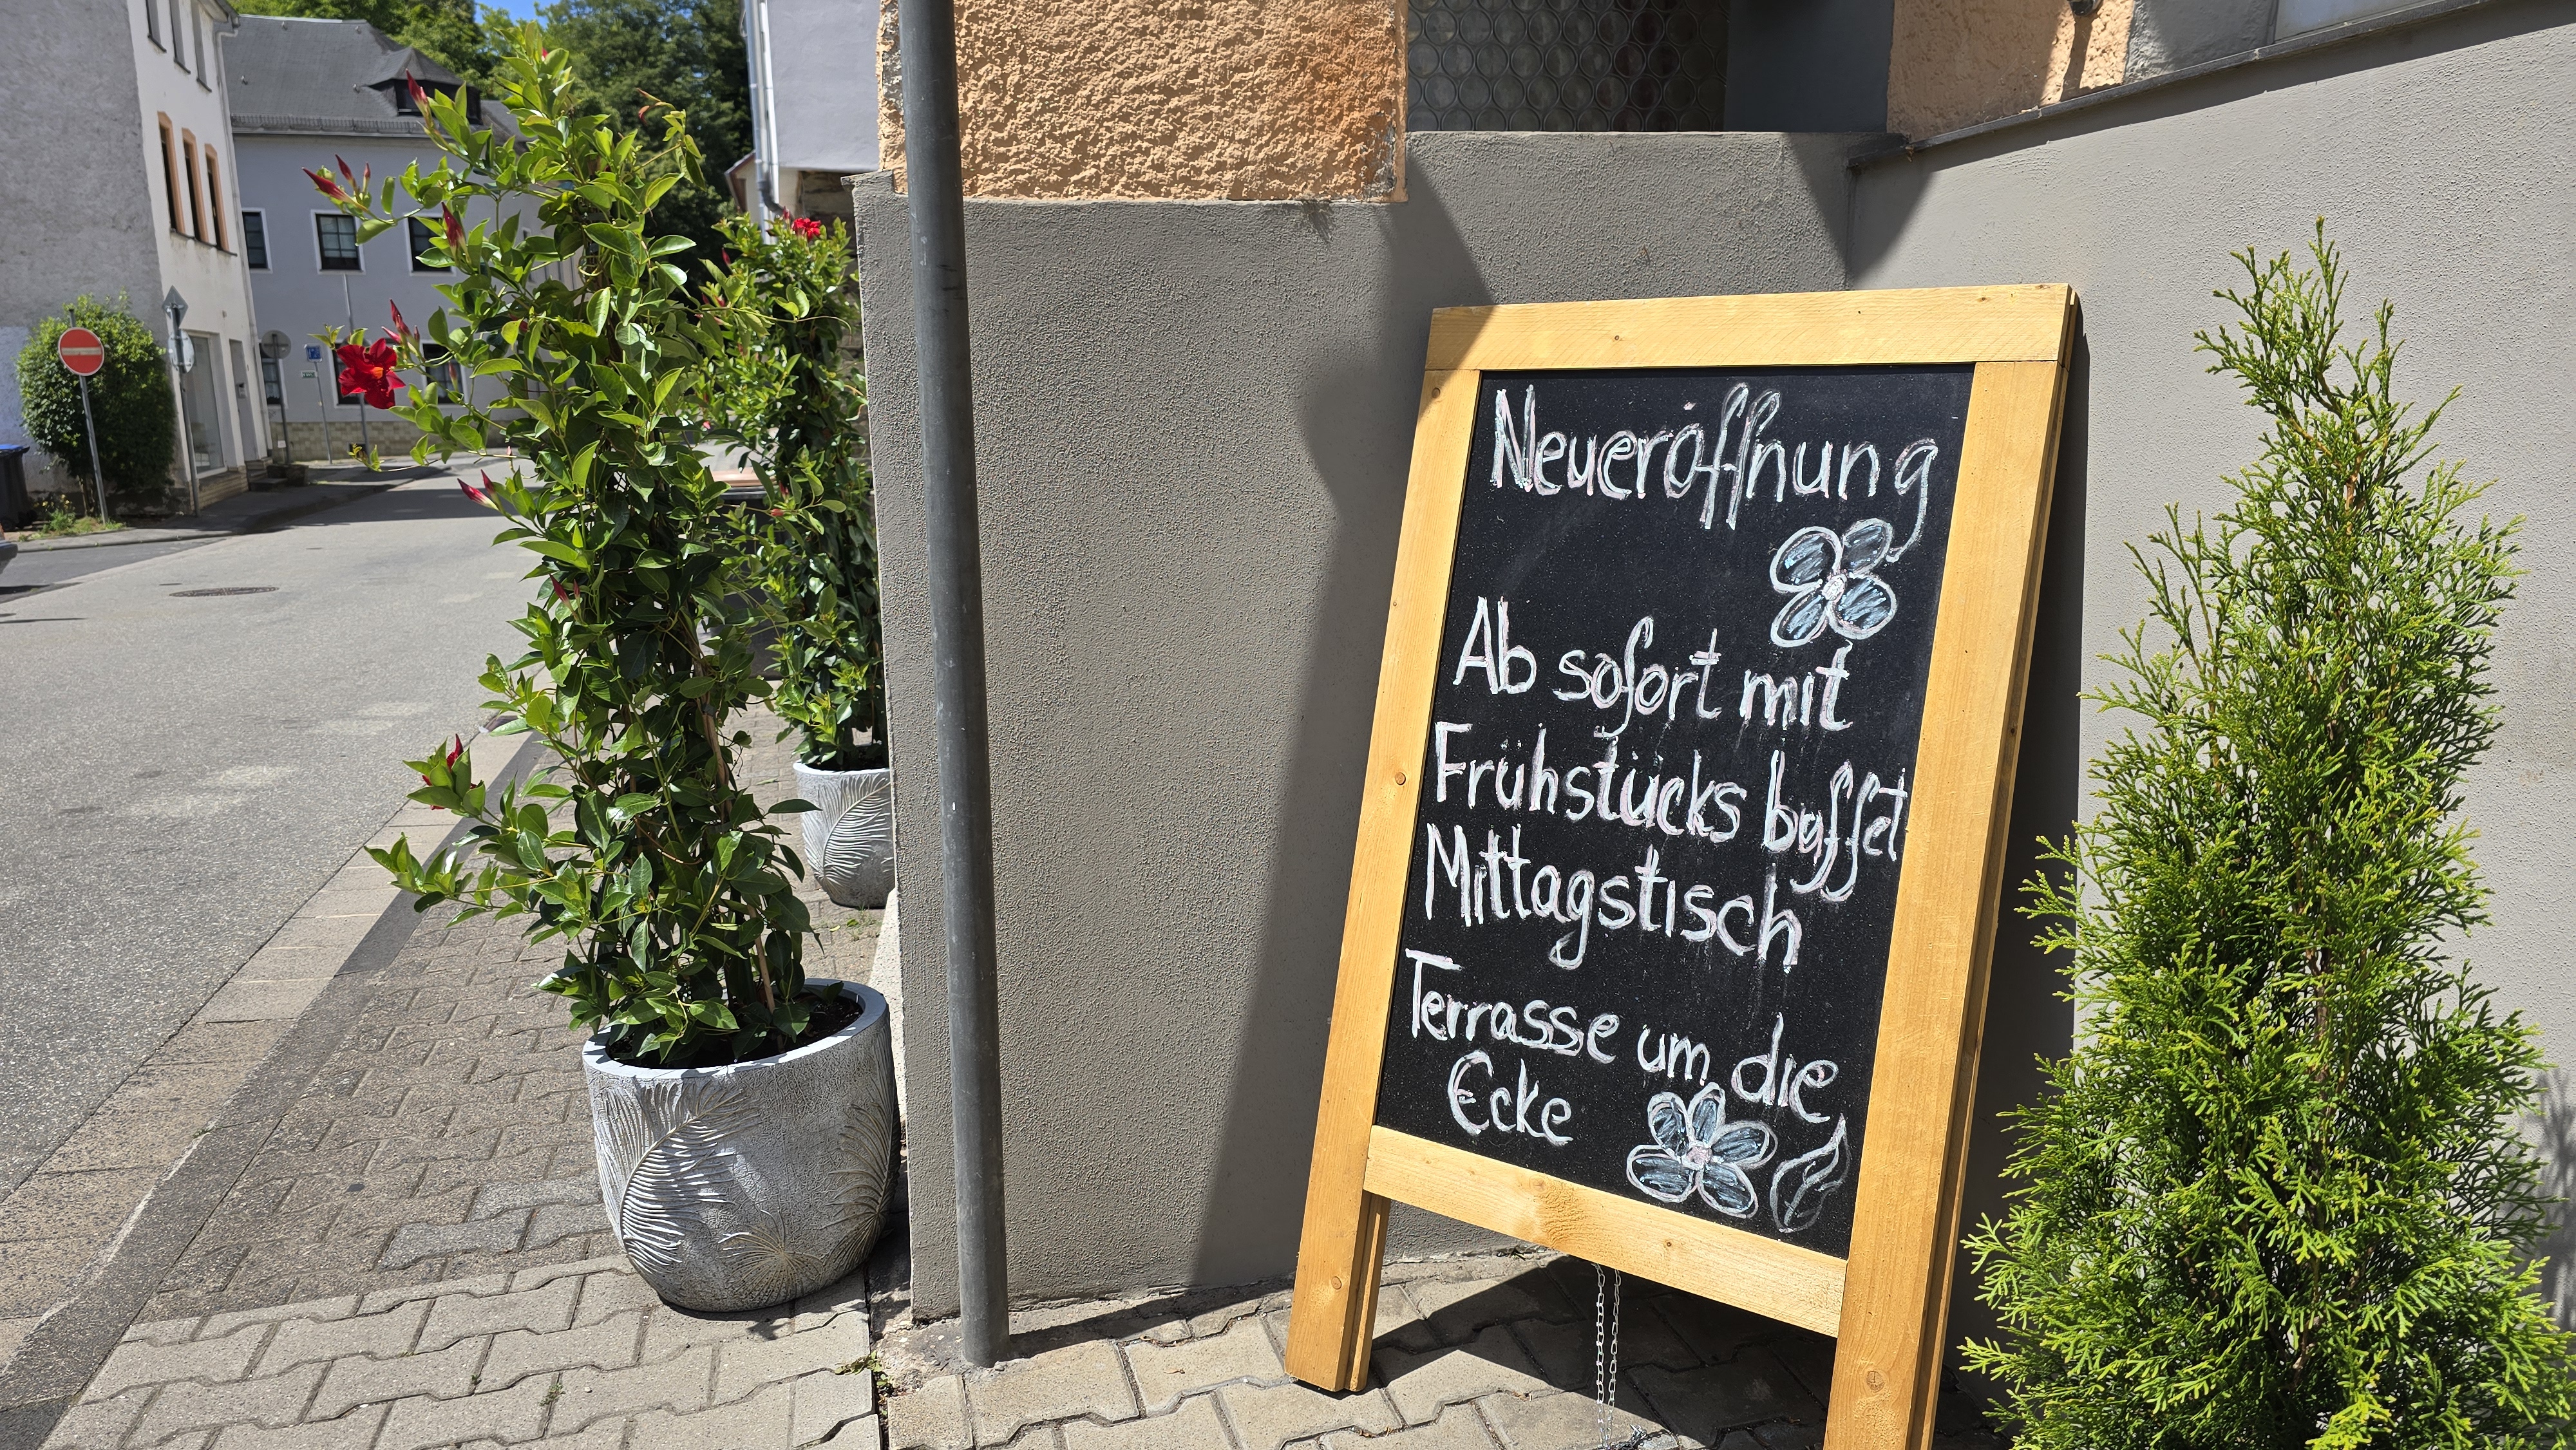 Neueröffnung
Ab sofort mit
Frühstücks buffet
Mittagstisch
Terrasse um die
Ecke